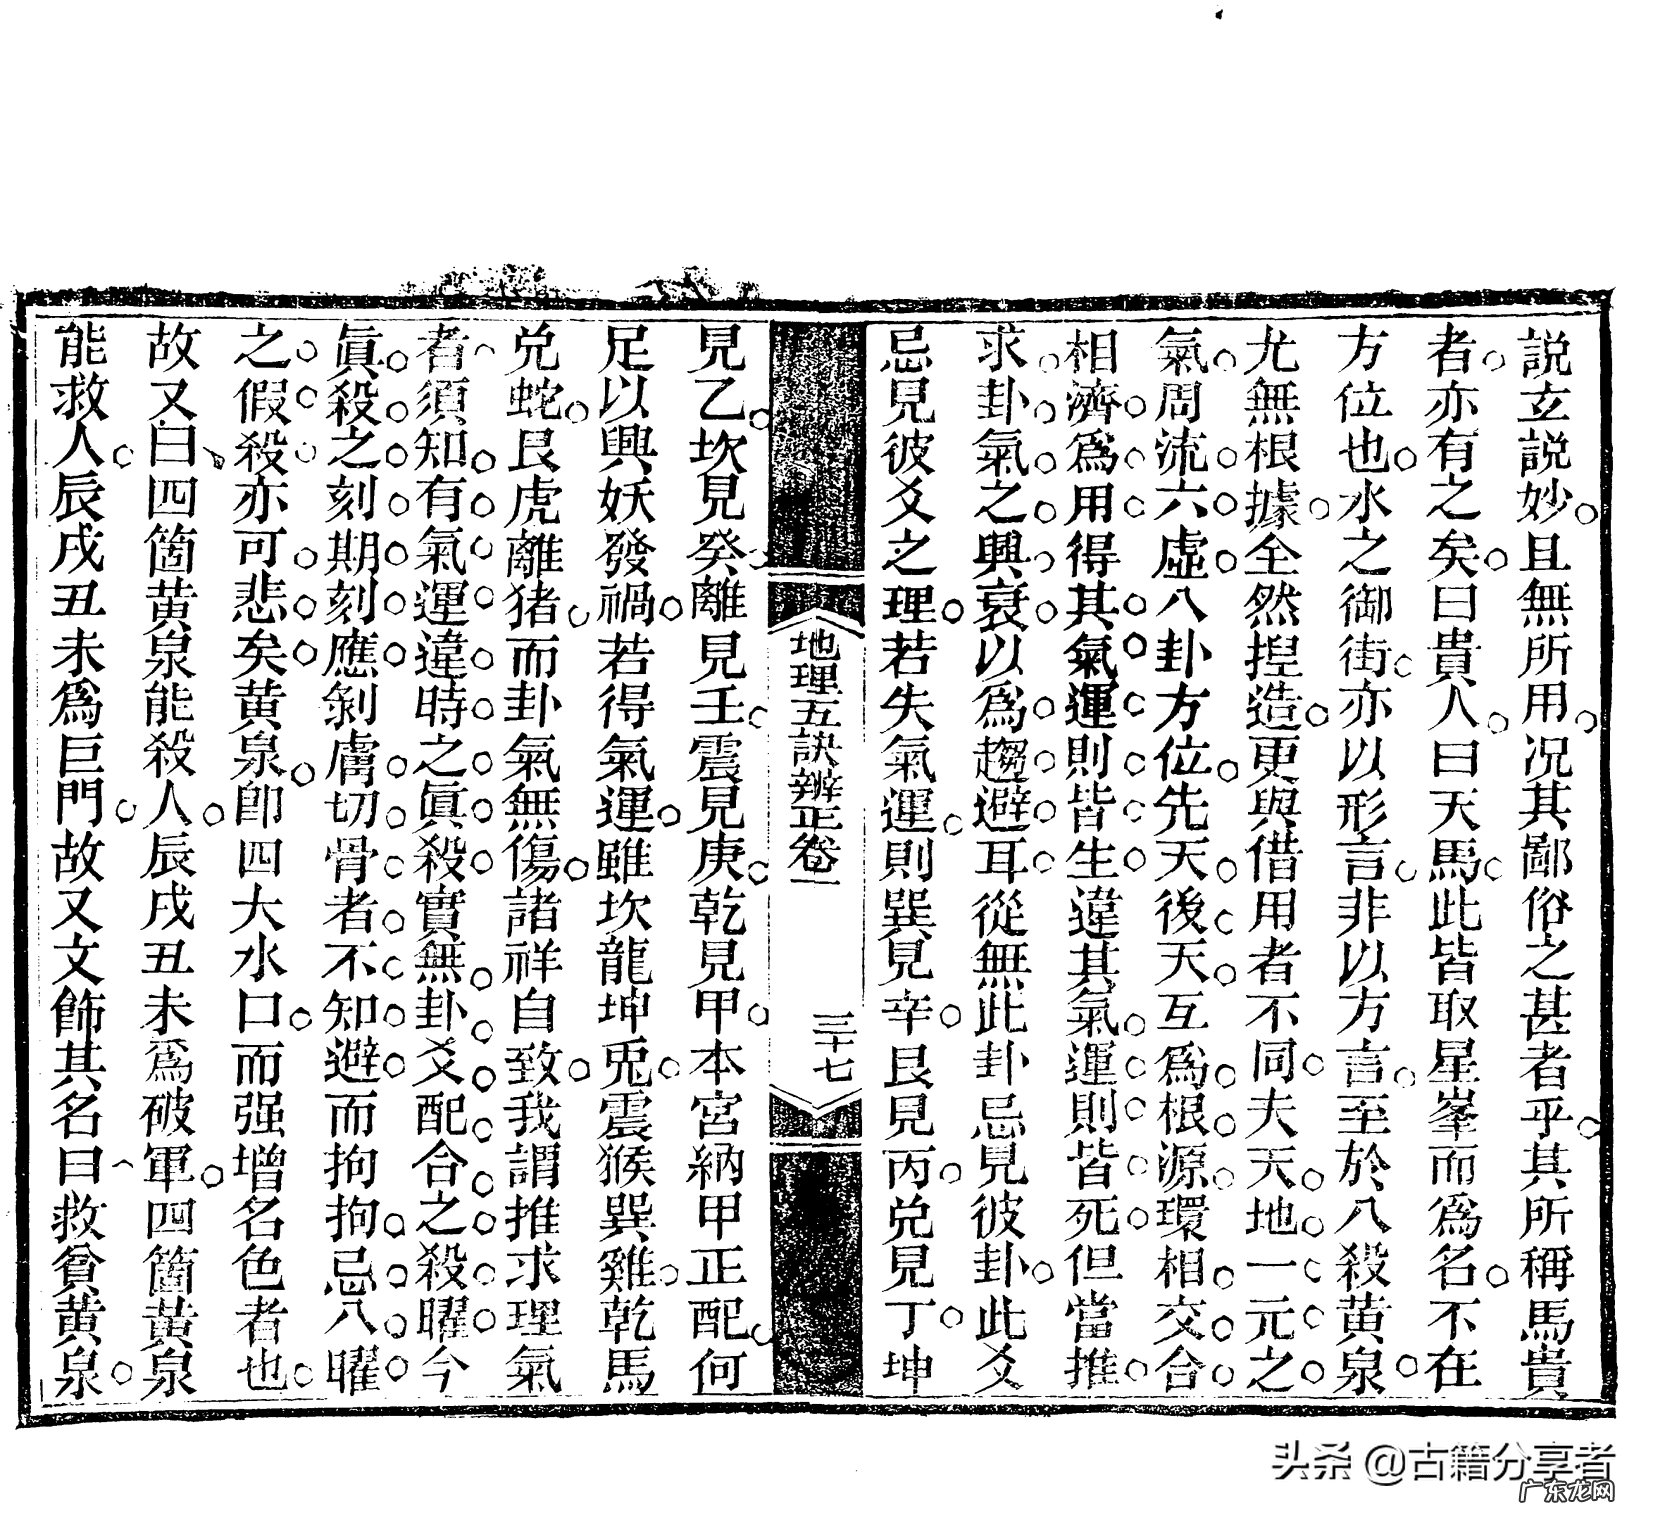 説玄説妙且無所用况其鄙俗之甚者乎其所稱馬貴
者亦有之矣曰貴人曰天馬此皆取星峯而爲名不在
方位也水之御街亦以形言非以方言至於八殺黄泉
尤無根據全然揑造更與借用者不同夫天地一元之
氣周流六虛八卦方位先天後天互爲根源環相交合
相濟爲用得其氣運則皆生違其氣運則皆死但當推
求卦氣之興衰以爲趨避耳從無此卦忌見彼卦此爻
忌見彼爻之理若失氣運則巽見辛艮見丙兌見丁坤
地理五訣辨正卷一
三十七
見乙坎見癸離見壬震見庚乾見甲本宮納甲正配何
足以興妖發禍若得氣運雖坎龍坤兎震猴巽雞乾馬
兌蛇艮虎離猪而卦氣無傷諸祥自致我謂推求理氣
者須知有氣運違時之眞殺實無卦爻配合之殺曜今
眞殺之刻期刻應剝膚切骨者不知避而拘拘忌八曜
之假殺亦可悲矣黄泉卽四大水口而强增名色者也
故又曰四箇黄泉能殺人辰戌丑未爲破軍四箇黄泉
能救人辰戌丑未爲巨門故又文飾其名曰救貧黄泉
头条 @古籍分享者
广东龙网